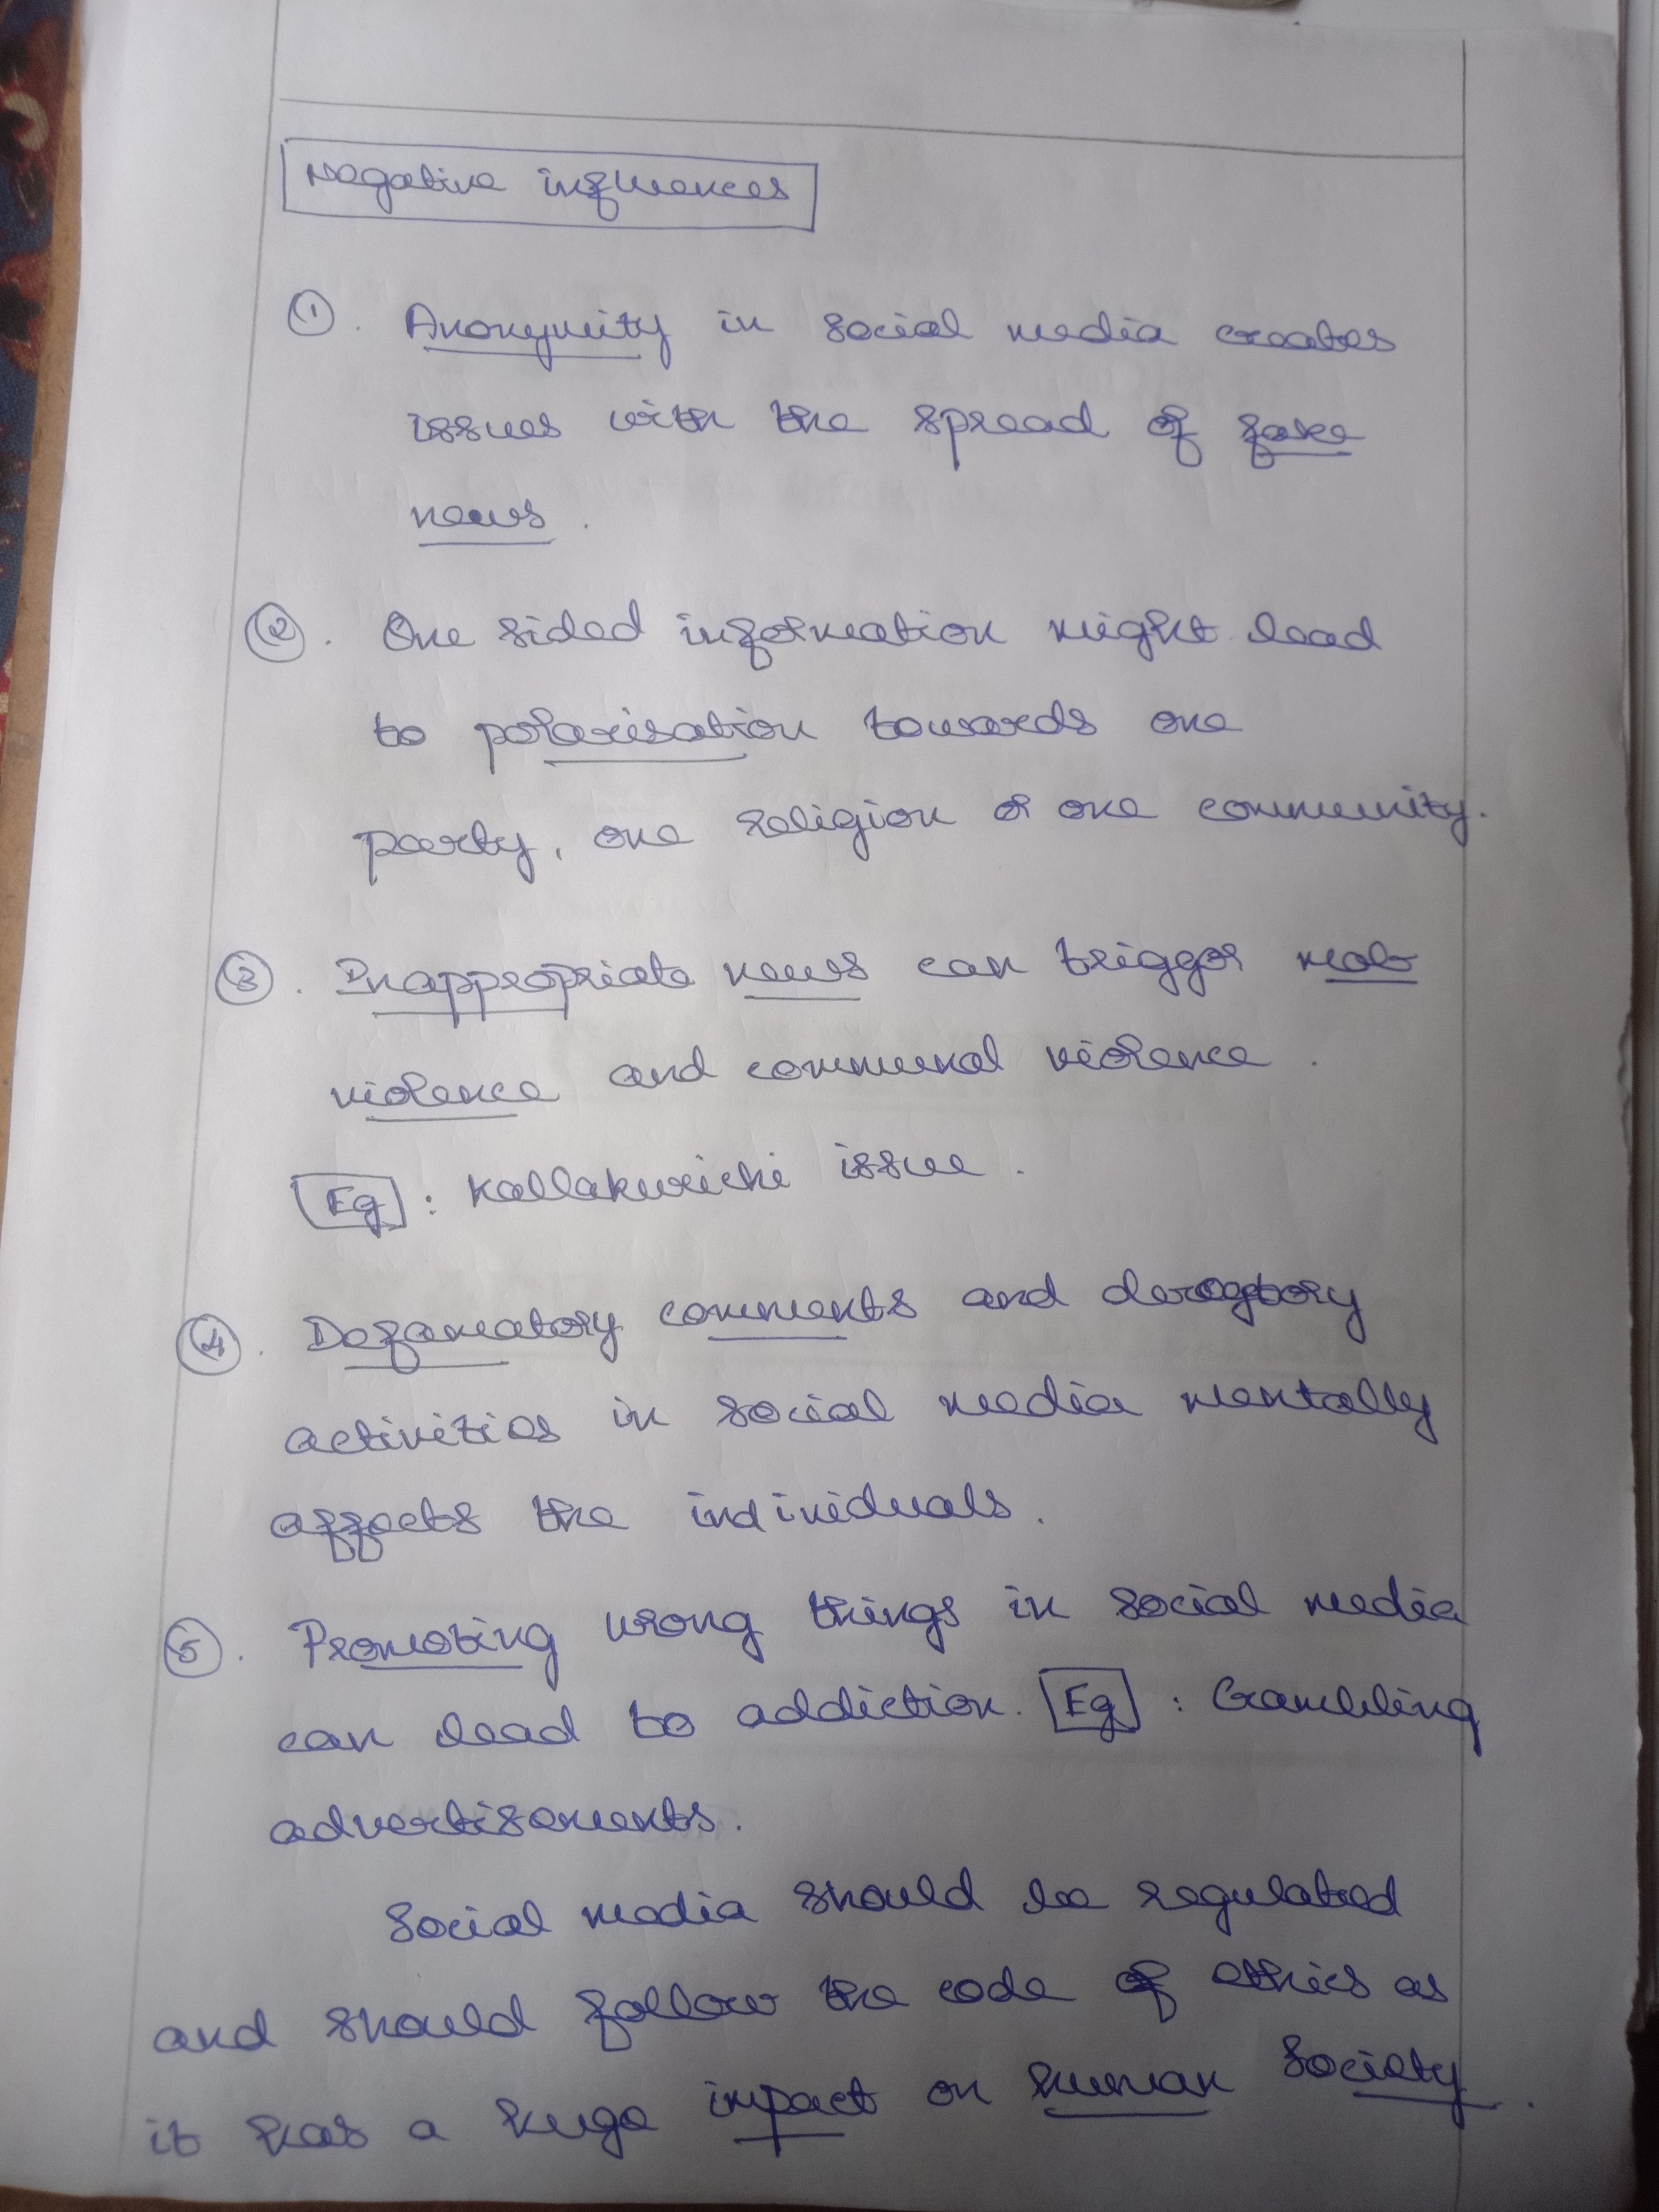 Negative influences
① . Anonymity in social media creates
issues with the spread of fake
news .
② . One sided information might lead
to polarisation towards one
party, one religion or one community.
③ . Inappropriate news can trigger mob
violence and communal violence .
Eg : Kallakurichi issue .
④ . Defamatory comments and derogtory
activities in social media mentally
affects the individuals .
⑤ . Promoting wrong things in social media
can lead to addiction. Eg : Gambling
advertisements .
Social media should be regulated
and should follow the code of ethics as
it has a huge impact on human society .